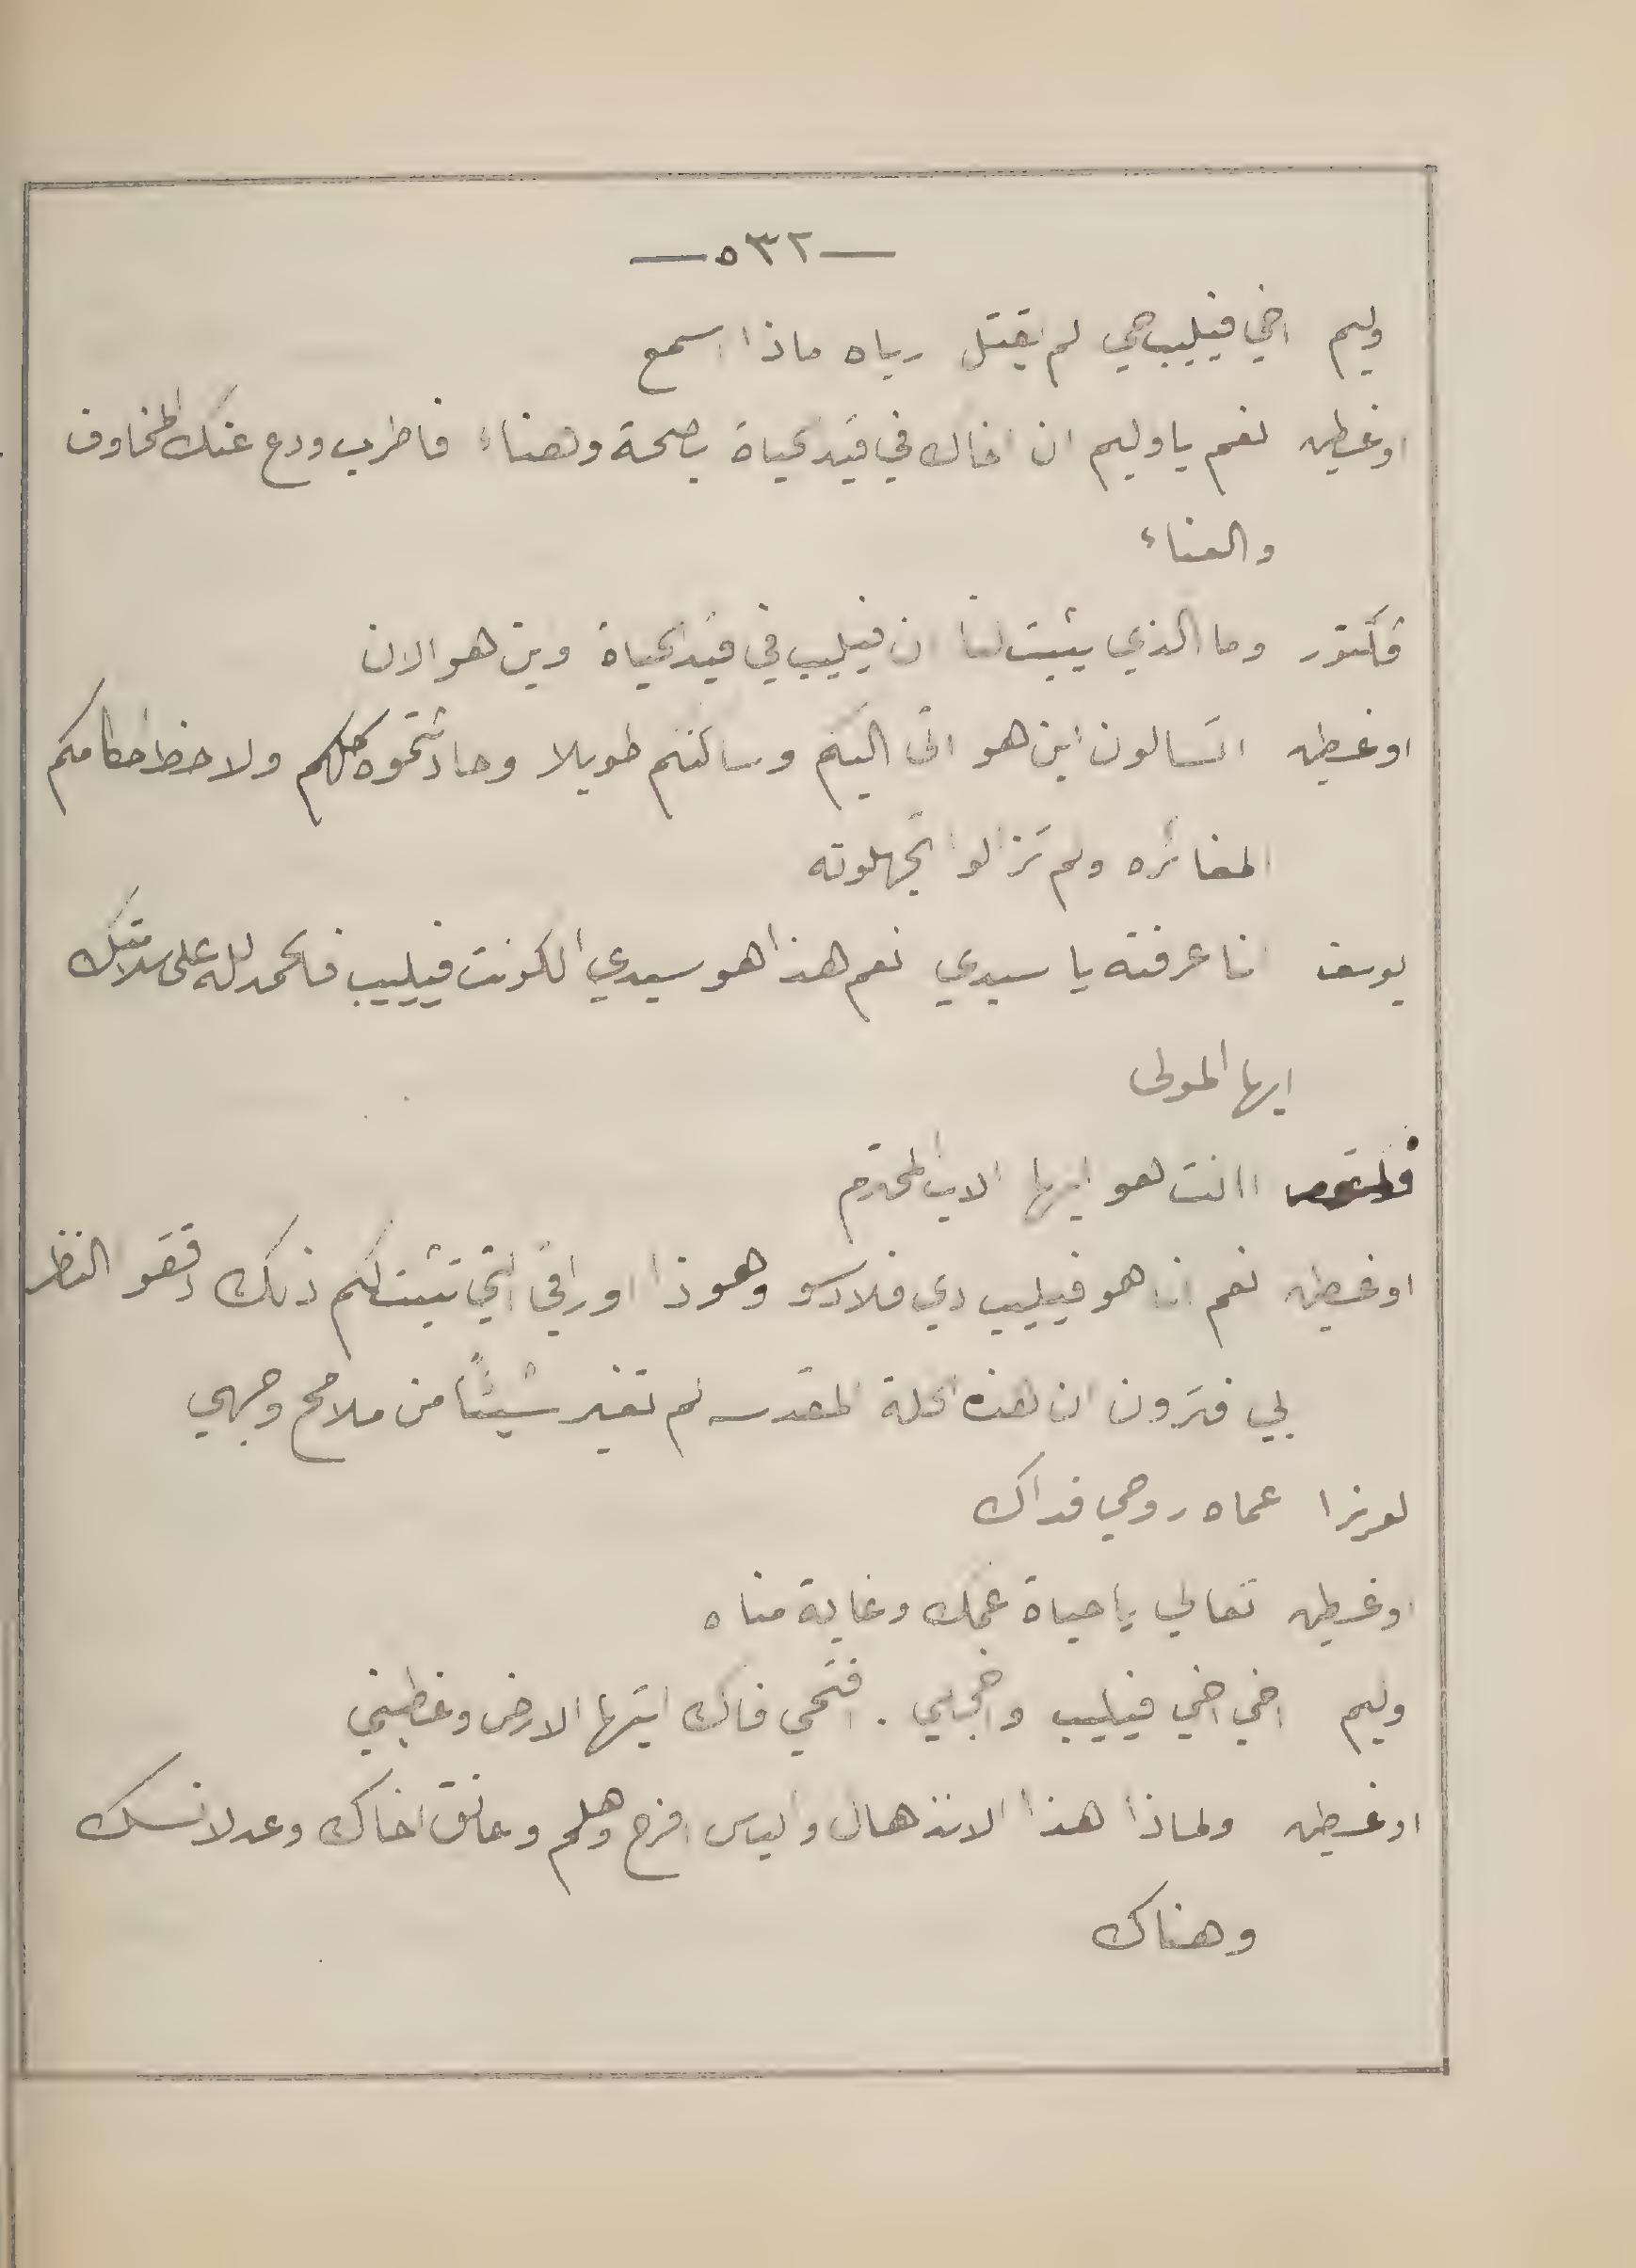 —٥٣٢—
وليم اخي فيليب حي لم يقتل رباه ماذا اسمع
اوغسطين نعم يا وليم ان اخاك في قيد الحياة بصحة وهناء فاطرب ودع عنك المخاوف
والعناء
فكتور وما الذي يثبت لنا ان فيليب في قيد الحياة وين هو الان
اوغسطين اتسالون اين هو اتى اليكم وساكنكم طويلا وحادثتموه كلكم ولاحظ احكامكم
المغائره ولم تزالوا تجهلونه
يوسف انا عرفته يا سيدي نعم هذا هو سيدي الكونت فيليب فالحمد لله على سلامتك
ايها المولى
اانت هو ايها الاب المحترم
اوغسطين نعم انا هو فيليب دي فلادسو وهوذا اوراقي التي تثبت لكم ذلك دققو النظر
بي فترون ان هذه الحلة المقدسه لم تغير شيئاً من ملامح وجهي
لويزا عماه روحي فداك
اوغسطين تعالي يا حياة عمك وغاية مناه
وليم اخي اخي فيليب واخجلي . افتحي فاك ايتها الارض وغطيني
اوغسطين ولماذا هذا الانذهال والياس افرح وهلم وعانق اخاك وعد لانسك
وهناك